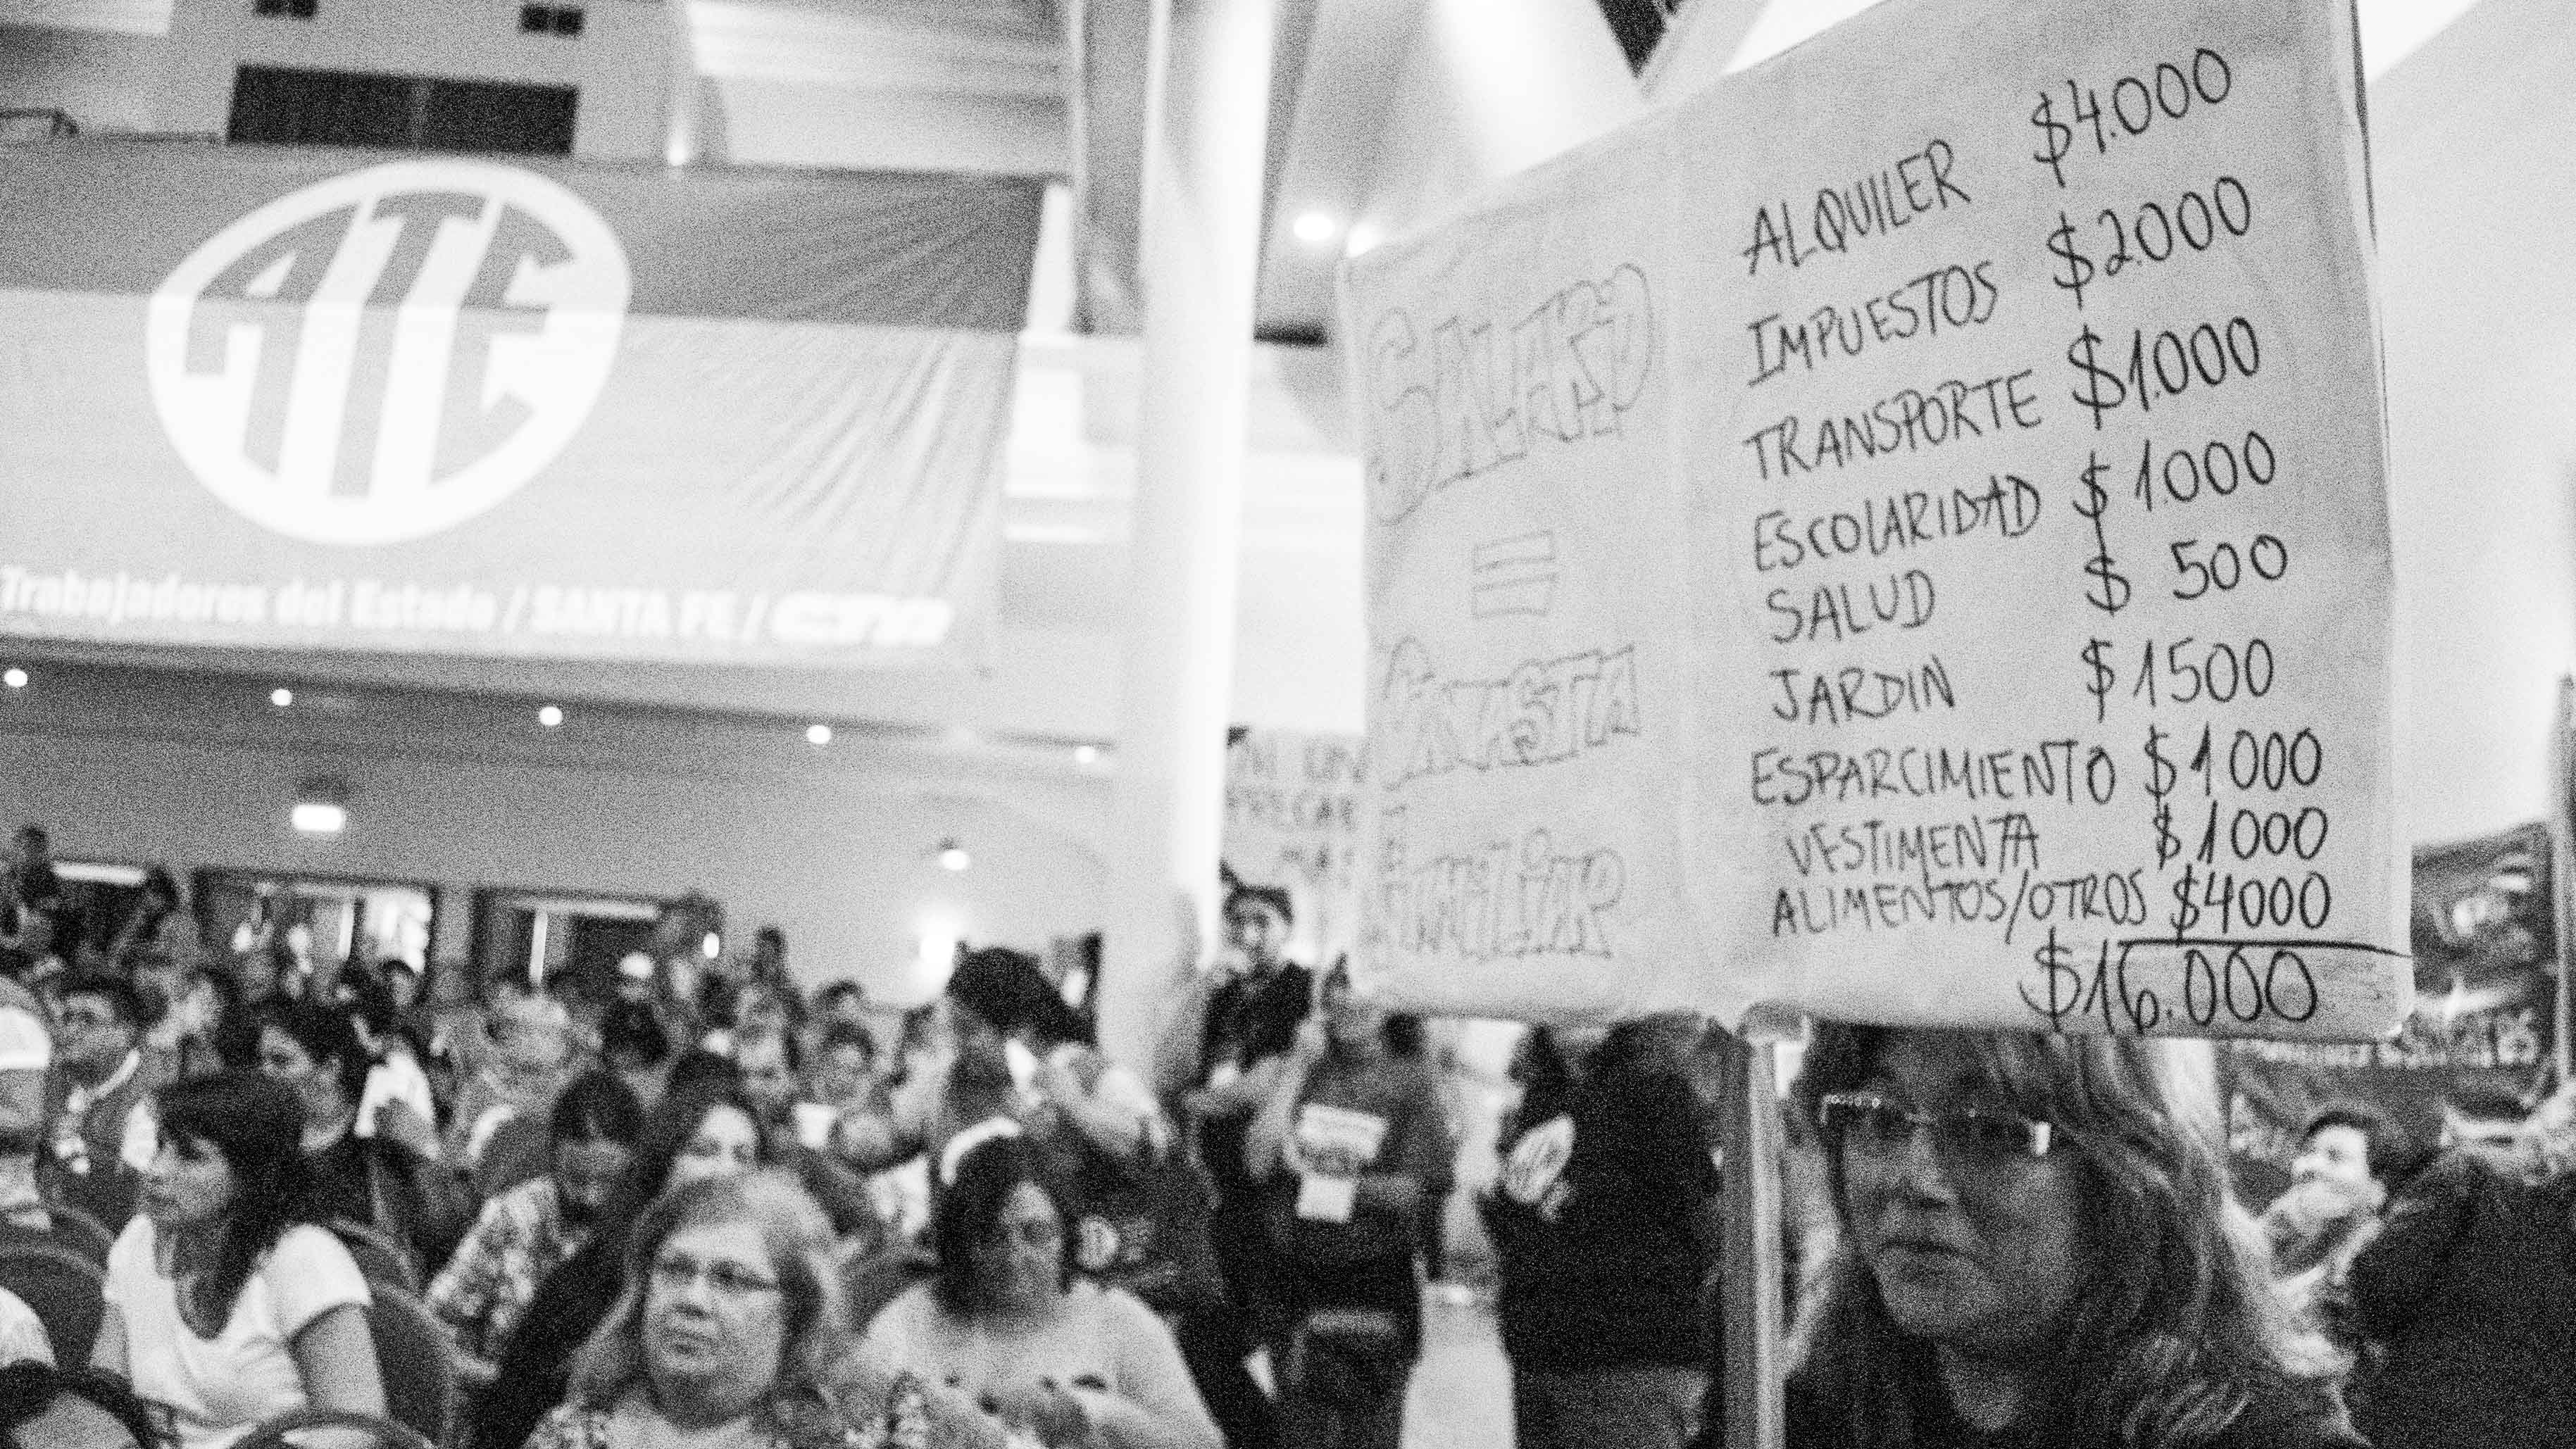 ATE
Trabajadores del Estado / SANTA FE /
SALARIO
=
CANASTA
FAMILIAR
ALQUILER $4.000
IMPUESTOS $2.000
TRANSPORTE $1.000
ESCOLARIDAD $1.000
SALUD $ 500
JARDIN $1500
ESPARCIMIENTO $1000
VESTIMENTA $1000
ALIMENTOS/OTROS $4000
$16.000